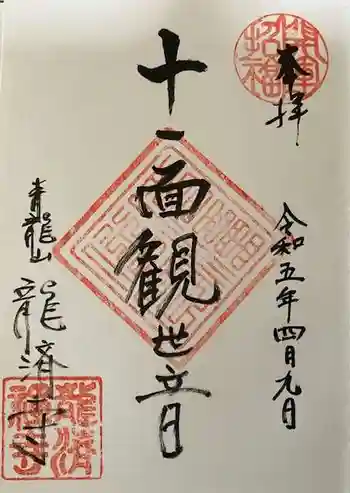 奉拝
令和五年四月九日
十一面観世音
青龍山
龍済寺
開運招福
龍済禅寺